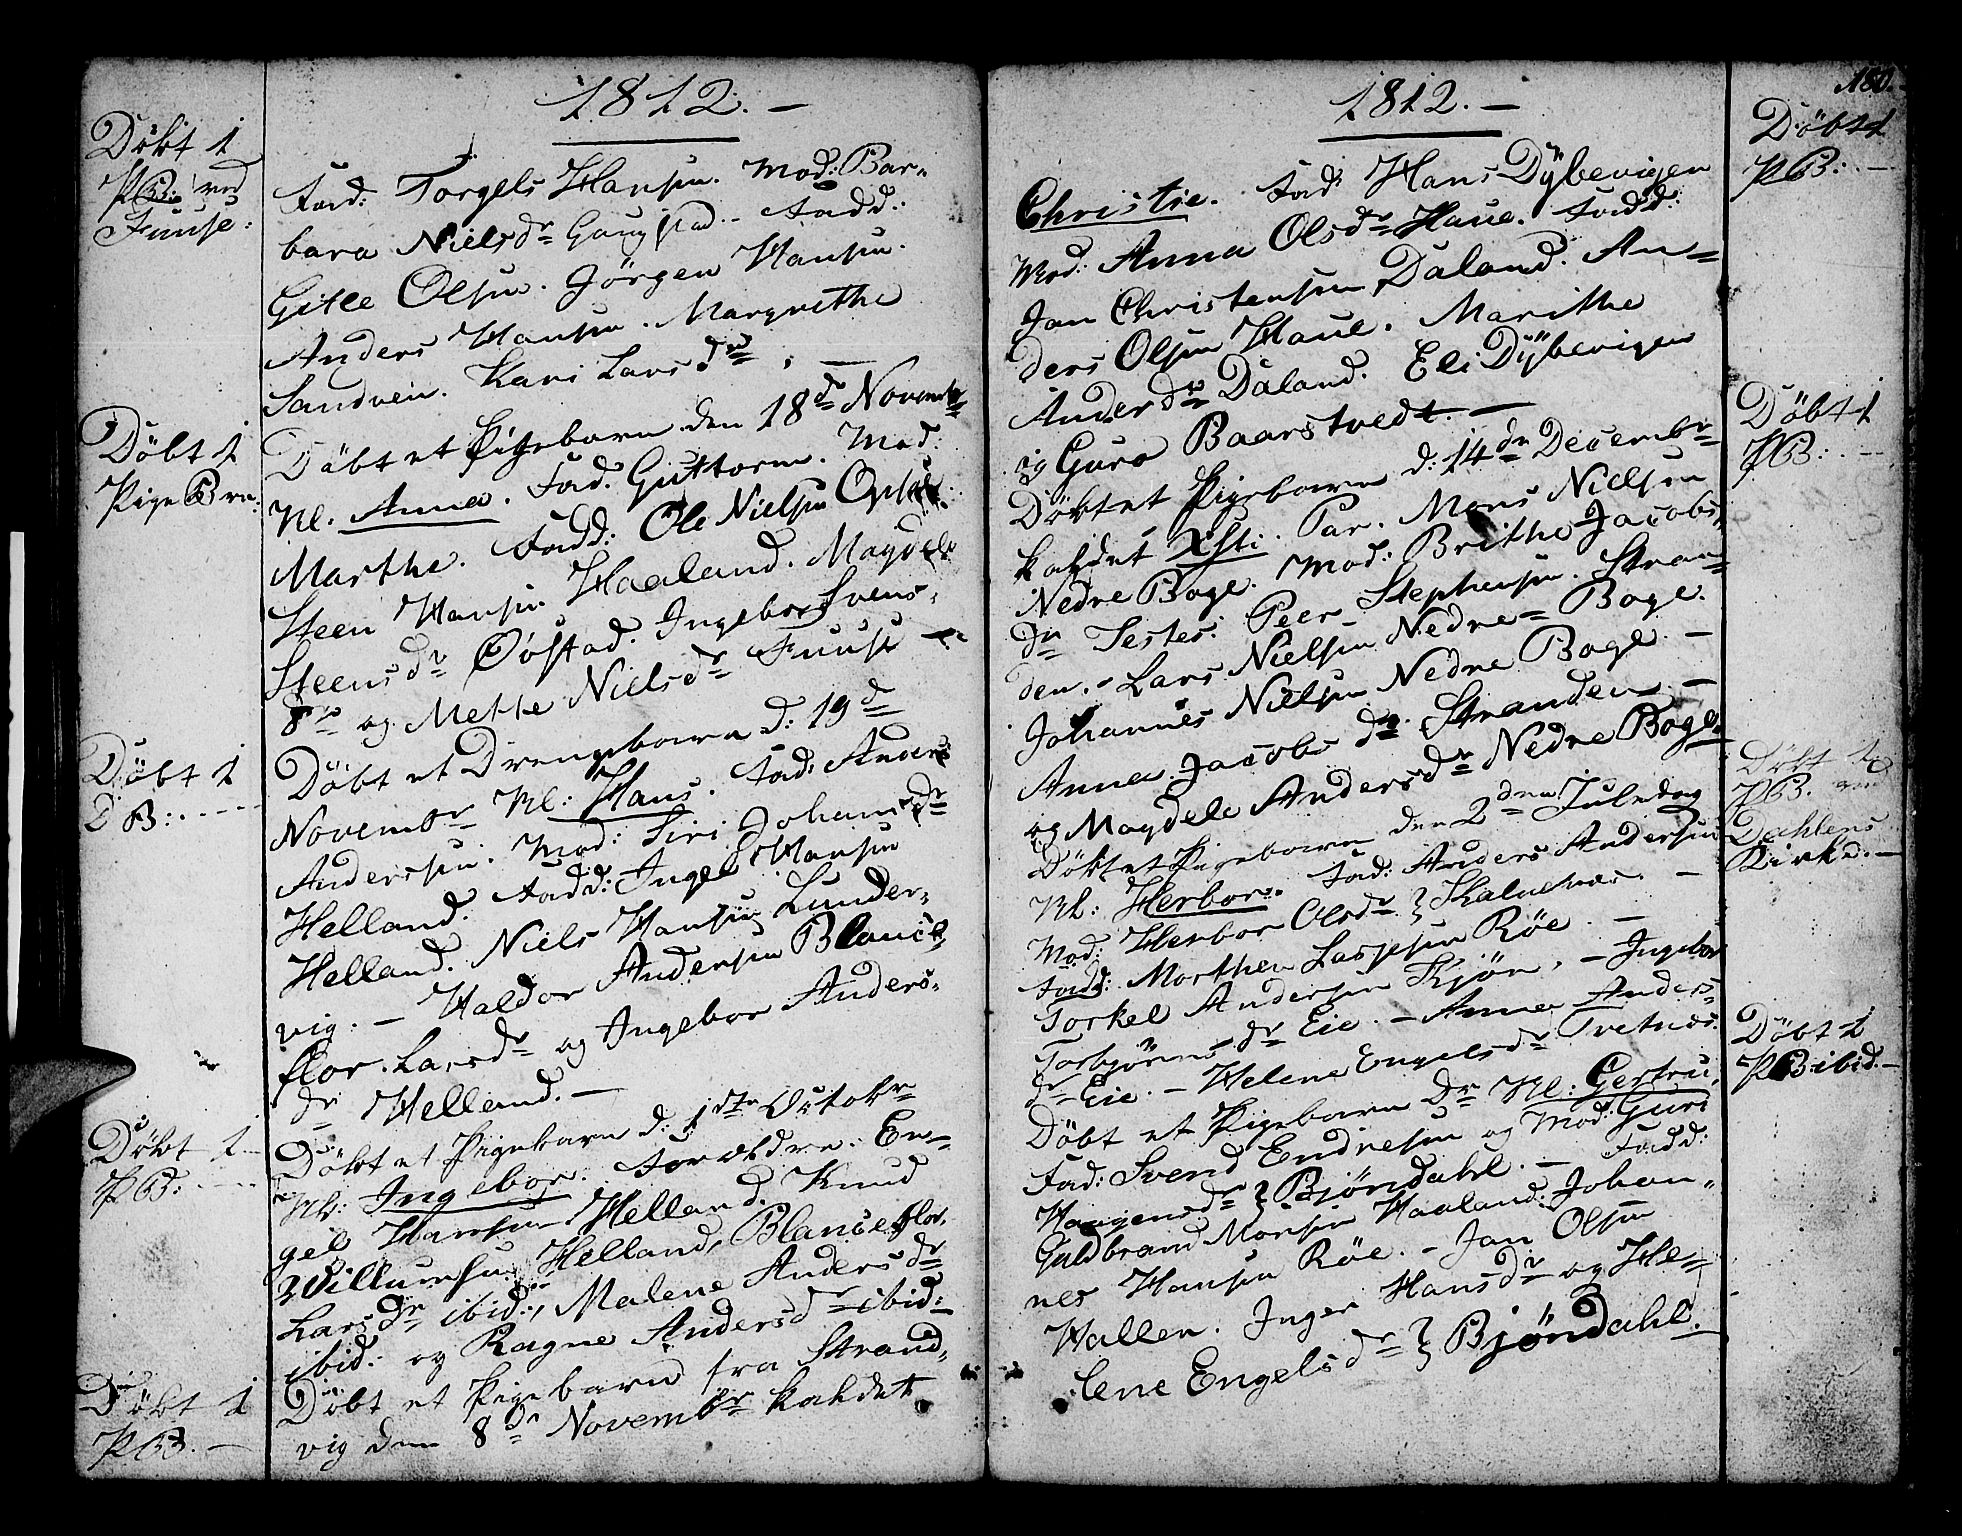 1812. —
Döbt 1
PB: ved
Fuuse:
Fad: Torgels Hansen. Mod: Bar-
bara Nielsdr Gougstad. Fadd:
Gitle Olsen. Jörgen Hansen.
Anders Hansen. Margrethe
Sandvein. Kari Larsdr. —
Döbt 1
Pige Brn:
Döbt et Pigebarn den 18de Novembr
Nl. Anna. Fad. Guttorm. Mod:
Marthe. Fadd: Ole Nielsen
Steen Hansen Haaland. Magdele
Steensdr Øústad. Ingebor Svens-
dr og Mette Nielsdr Fuuse —
Döbt 1
DB: . - - -
Döbt et Drengebarn d: 19d
Novembr Nl: Hans. Fad: Anders
Andersen. Mod: Siri Johansdr
Helland. Fadd: Ingel Hansen
Helland. Niels Hansen Lunder-
vig. — Haldor Andersen Blance
flor. Larsdr og Ingebor Anders-
dr Helland. —
Döbt 1 -
PB: . - - -
Döbt et Pigebarn d: 1ste Octobr
Nl: Ingebor. Forældre: En-
gel Hansen Helland. Knud
Villumsen Helland, Blanceflor.
Larsdr ibid:, Malene Andersdr
ibid: og Ragne Andersdr ibid:
Döbt 1
PB. —
Döbt et Pigebarn fra Strand-
vig den 8de Novembr kaldet
180.
1812. —
Döbt 1
PB: . —
Christie. Fad: Hans Dÿbevigen
Mod: Anna Olsdr Haue. Fadd:
Jan Christensen Daland. An-
ders Olsen Haue. Marithe
Andersdr Daland. Eli Dÿbevigen
og Guro Baarstvedt. —
Döbt 1
PB: . —
Döbt et Pigebarn d: 14de Decembr
kaldet Xsti. Par. Mons Nielsen
Nedre Boge. Mod: Brithe Jacobs
dr Testes: Peer Stephensen. Stran-
den. - Lars Nielsen Nedre Boge.
Johannes Nielsen Nedre Boge. —
Anna Jacobs dr. Stranden. —
og Magdele Andersdr Nedre Boge.
Döbt 1
PB. ved
Dahlens
Kirke. —
Döbt et Pigebarn den 2den Juledag
Nl: Herbor. Fad: Anders Andersen
Mod: Herbor Olsdr } Skaluenes. —
Fadd: Morthen Lassesen Röe. —
Torkel Andersen Kjön. — Ingebor
Torbjörns dr Eie. — Anna Anders-
dr Eie. — Helene Engelsdr Tvetnes.
Döbt 1
PB ibid. —
Döbt et Pigebarn Dr Nl: Gertru,
Fad: Svend Endresen og Mod: Guri
Haagensdr } Bjöndahl. — Fadd:
Guldbrand Monsen Haaland. Johan-
nes Hansen Röe. — Jan Olsen
Hallen. Inger Hansdr og He-
lene Engelsdr } Bjöndahl.